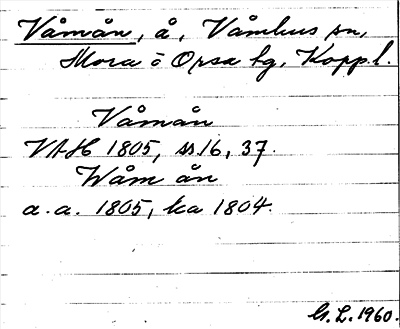 Våmån, å, Våmhus sn,
Mora o Orsa tg, Koppl.
Våmån
VAH 1805, ss 16, 37.
Wåm ån
a.a. 1805, ka 1804.
G.L. 1960.